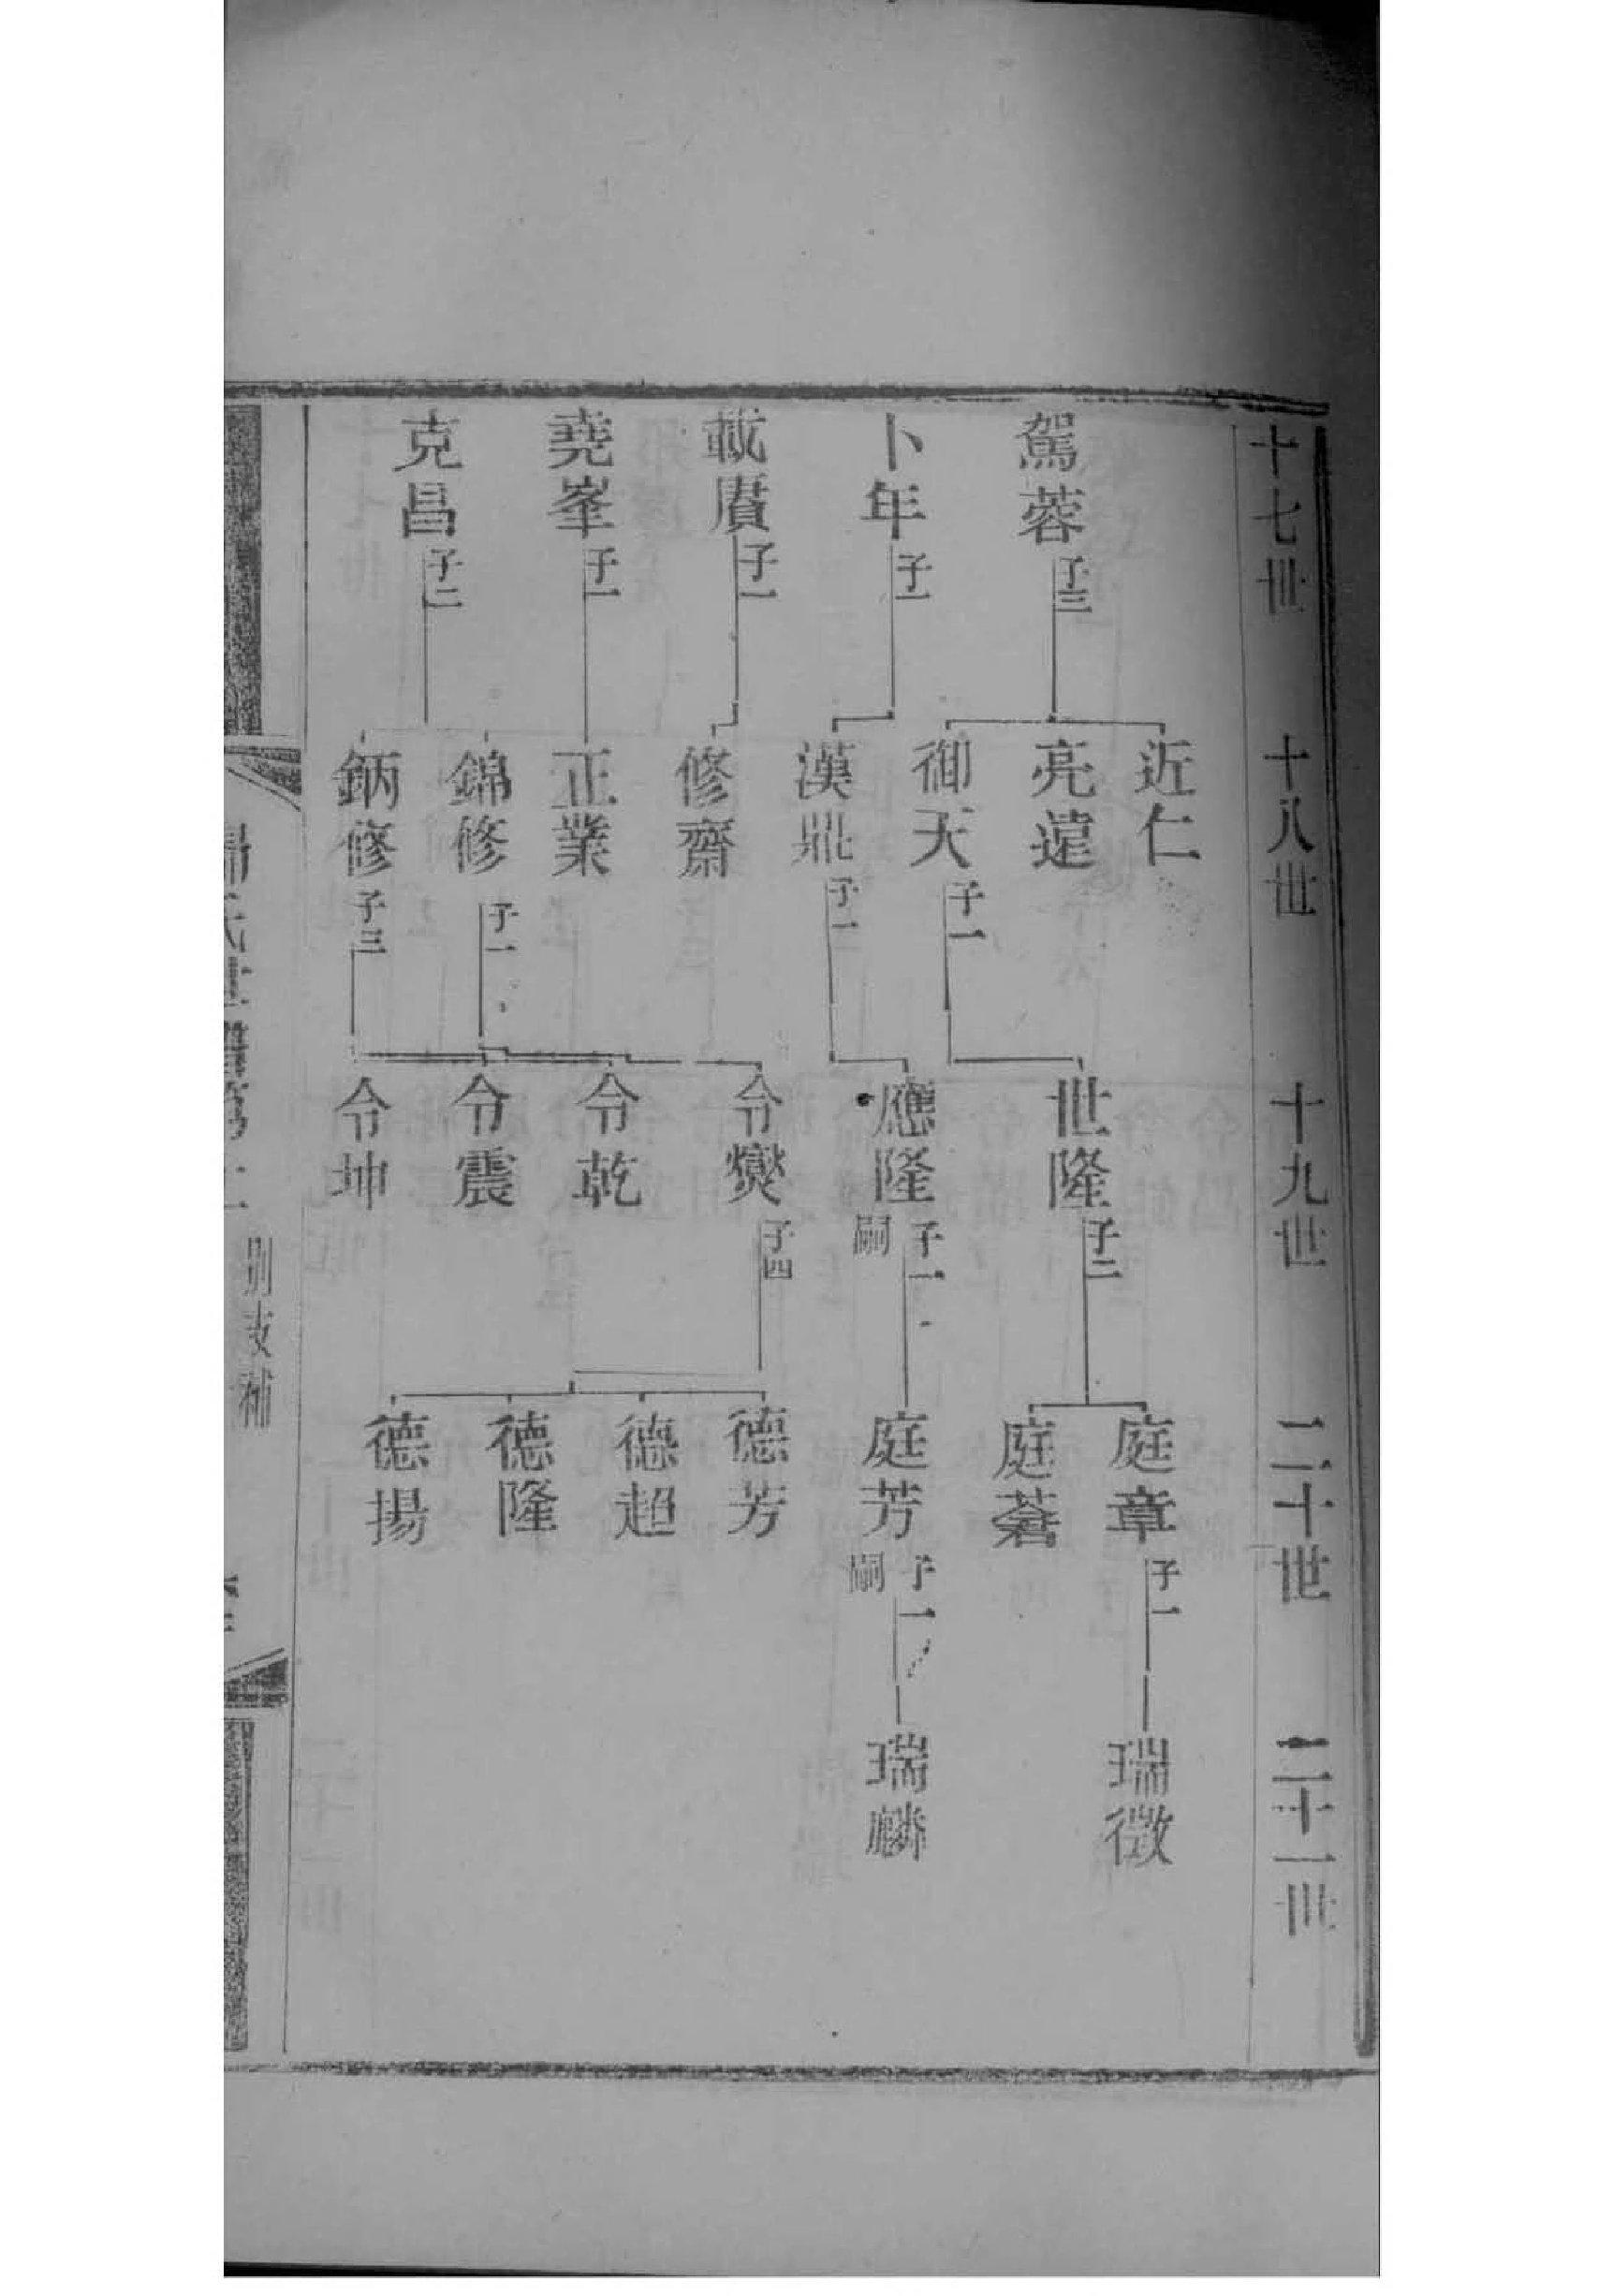 十七世 十八世 十九世 二十世 二十一世
駕蓉 子三
卜年 子一
載賡 子一
堯峯 子一
克昌 子二
近仁
亮遠
御天 子一
漢鼎 子一
修齋
正業
錦修 子一
鈵修 子三
世隆 子二
應隆 子一 嗣
令爕 子四
令乾
令震
令坤
庭章 子一
庭蒼
庭芳 子一 嗣
德芳
德超
德隆
德揚
瑞徵
瑞麟
別支補